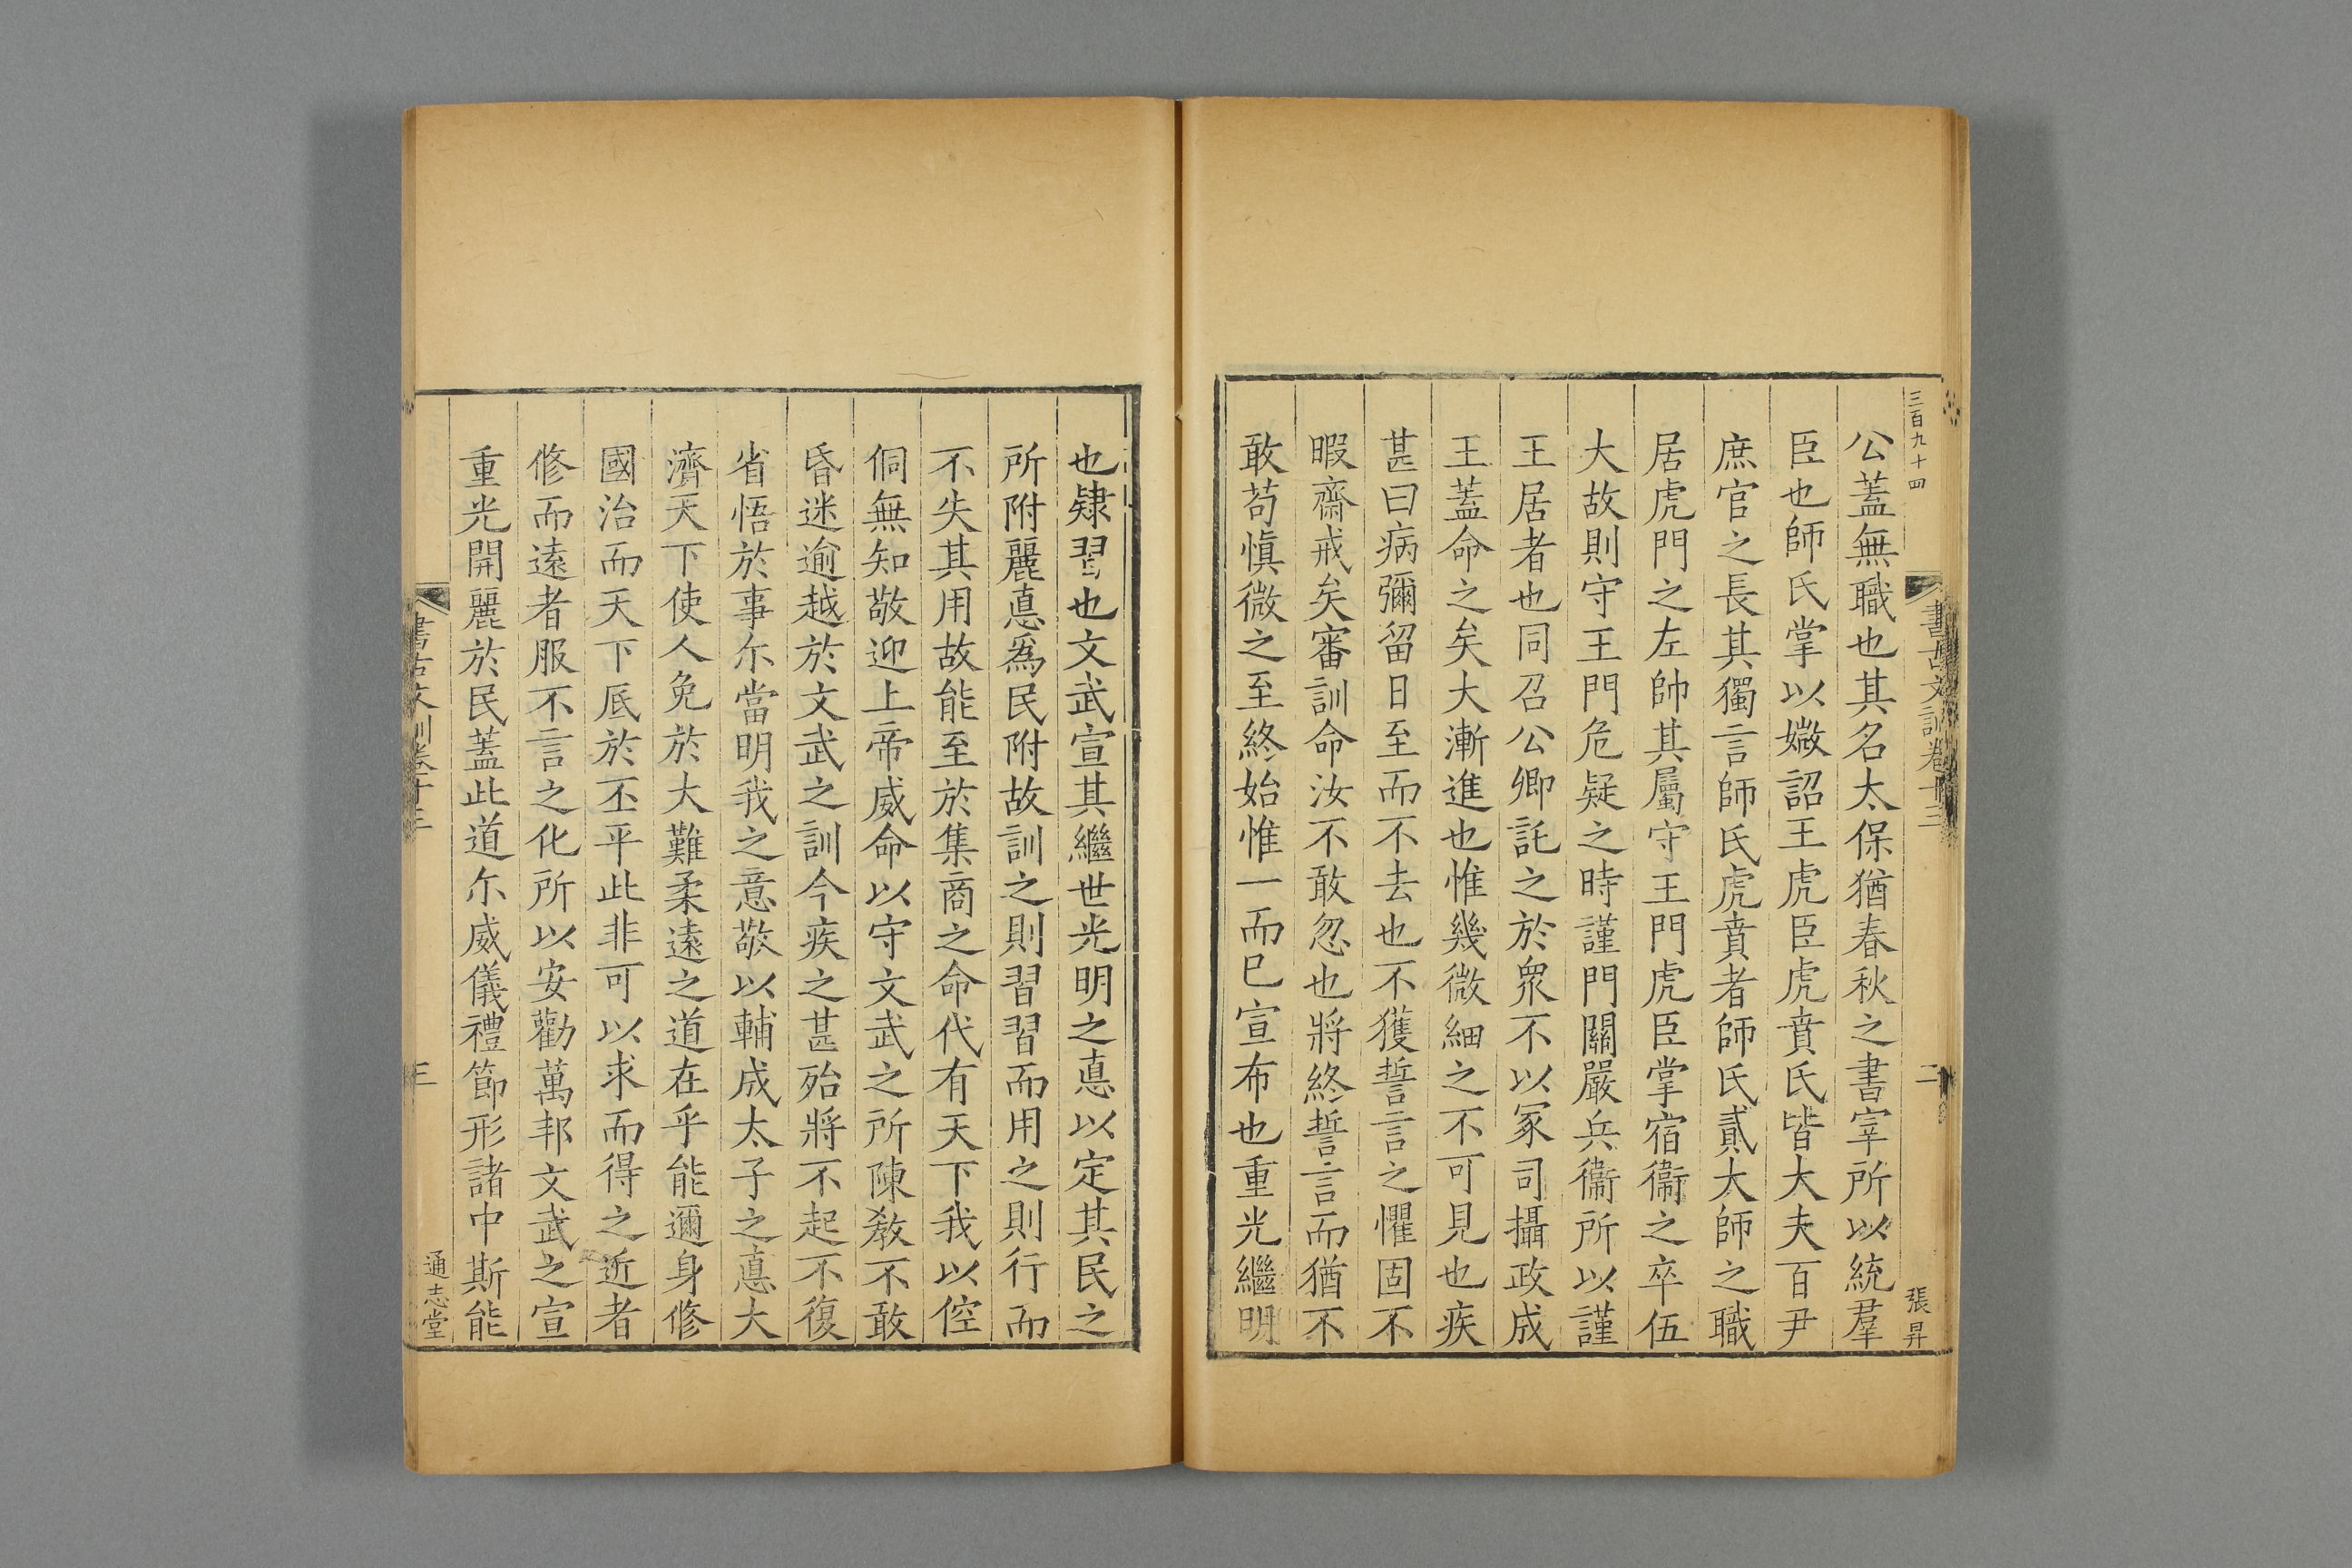 三百九十四
書古文訓卷十三
二
張昇
公蓋無職也其名太保猶春秋之書宰所以統羣
臣也師氏掌以媺詔王虎臣虎賁氏皆大夫百尹
庶官之長其獨言師氏虎賁者師氏貳大師之職
居虎門之左帥其屬守王門虎臣掌宿衞之卒伍
大故則守王門危疑之時謹門關嚴兵衞所以謹
王居者也同召公卿託之於衆不以冢司攝政成
王蓋命之矣大漸進也惟幾微細之不可見也疾
甚曰病彌留日至而不去也不獲誓言之懼固不
暇齋戒矣審訓命汝不敢忽也將終誓言而猶不
敢苟愼微之至終始惟一而巳宣布也重光繼明
也肄習也文武宣其繼世光明之悳以定其民之
所附麗悳爲民附故訓之則習習而用之則行而
不失其用故能至於集商之命代有天下我以倥
侗無知敬迎上帝威命以守文武之所陳敎不敢
昏迷逾越於文武之訓今疾之甚殆將不起不復
省悟於事尒當明我之意敬以輔成太子之悳大
濟天下使人免於大難柔遠之道在乎能邇身修
國治而天下底於丕平此非可以求而得之近者
修而遠者服不言之化所以安勸萬邦文武之宣
重光開麗於民蓋此道尒威儀禮節形諸中斯能
書古文訓卷十三
三
通志堂